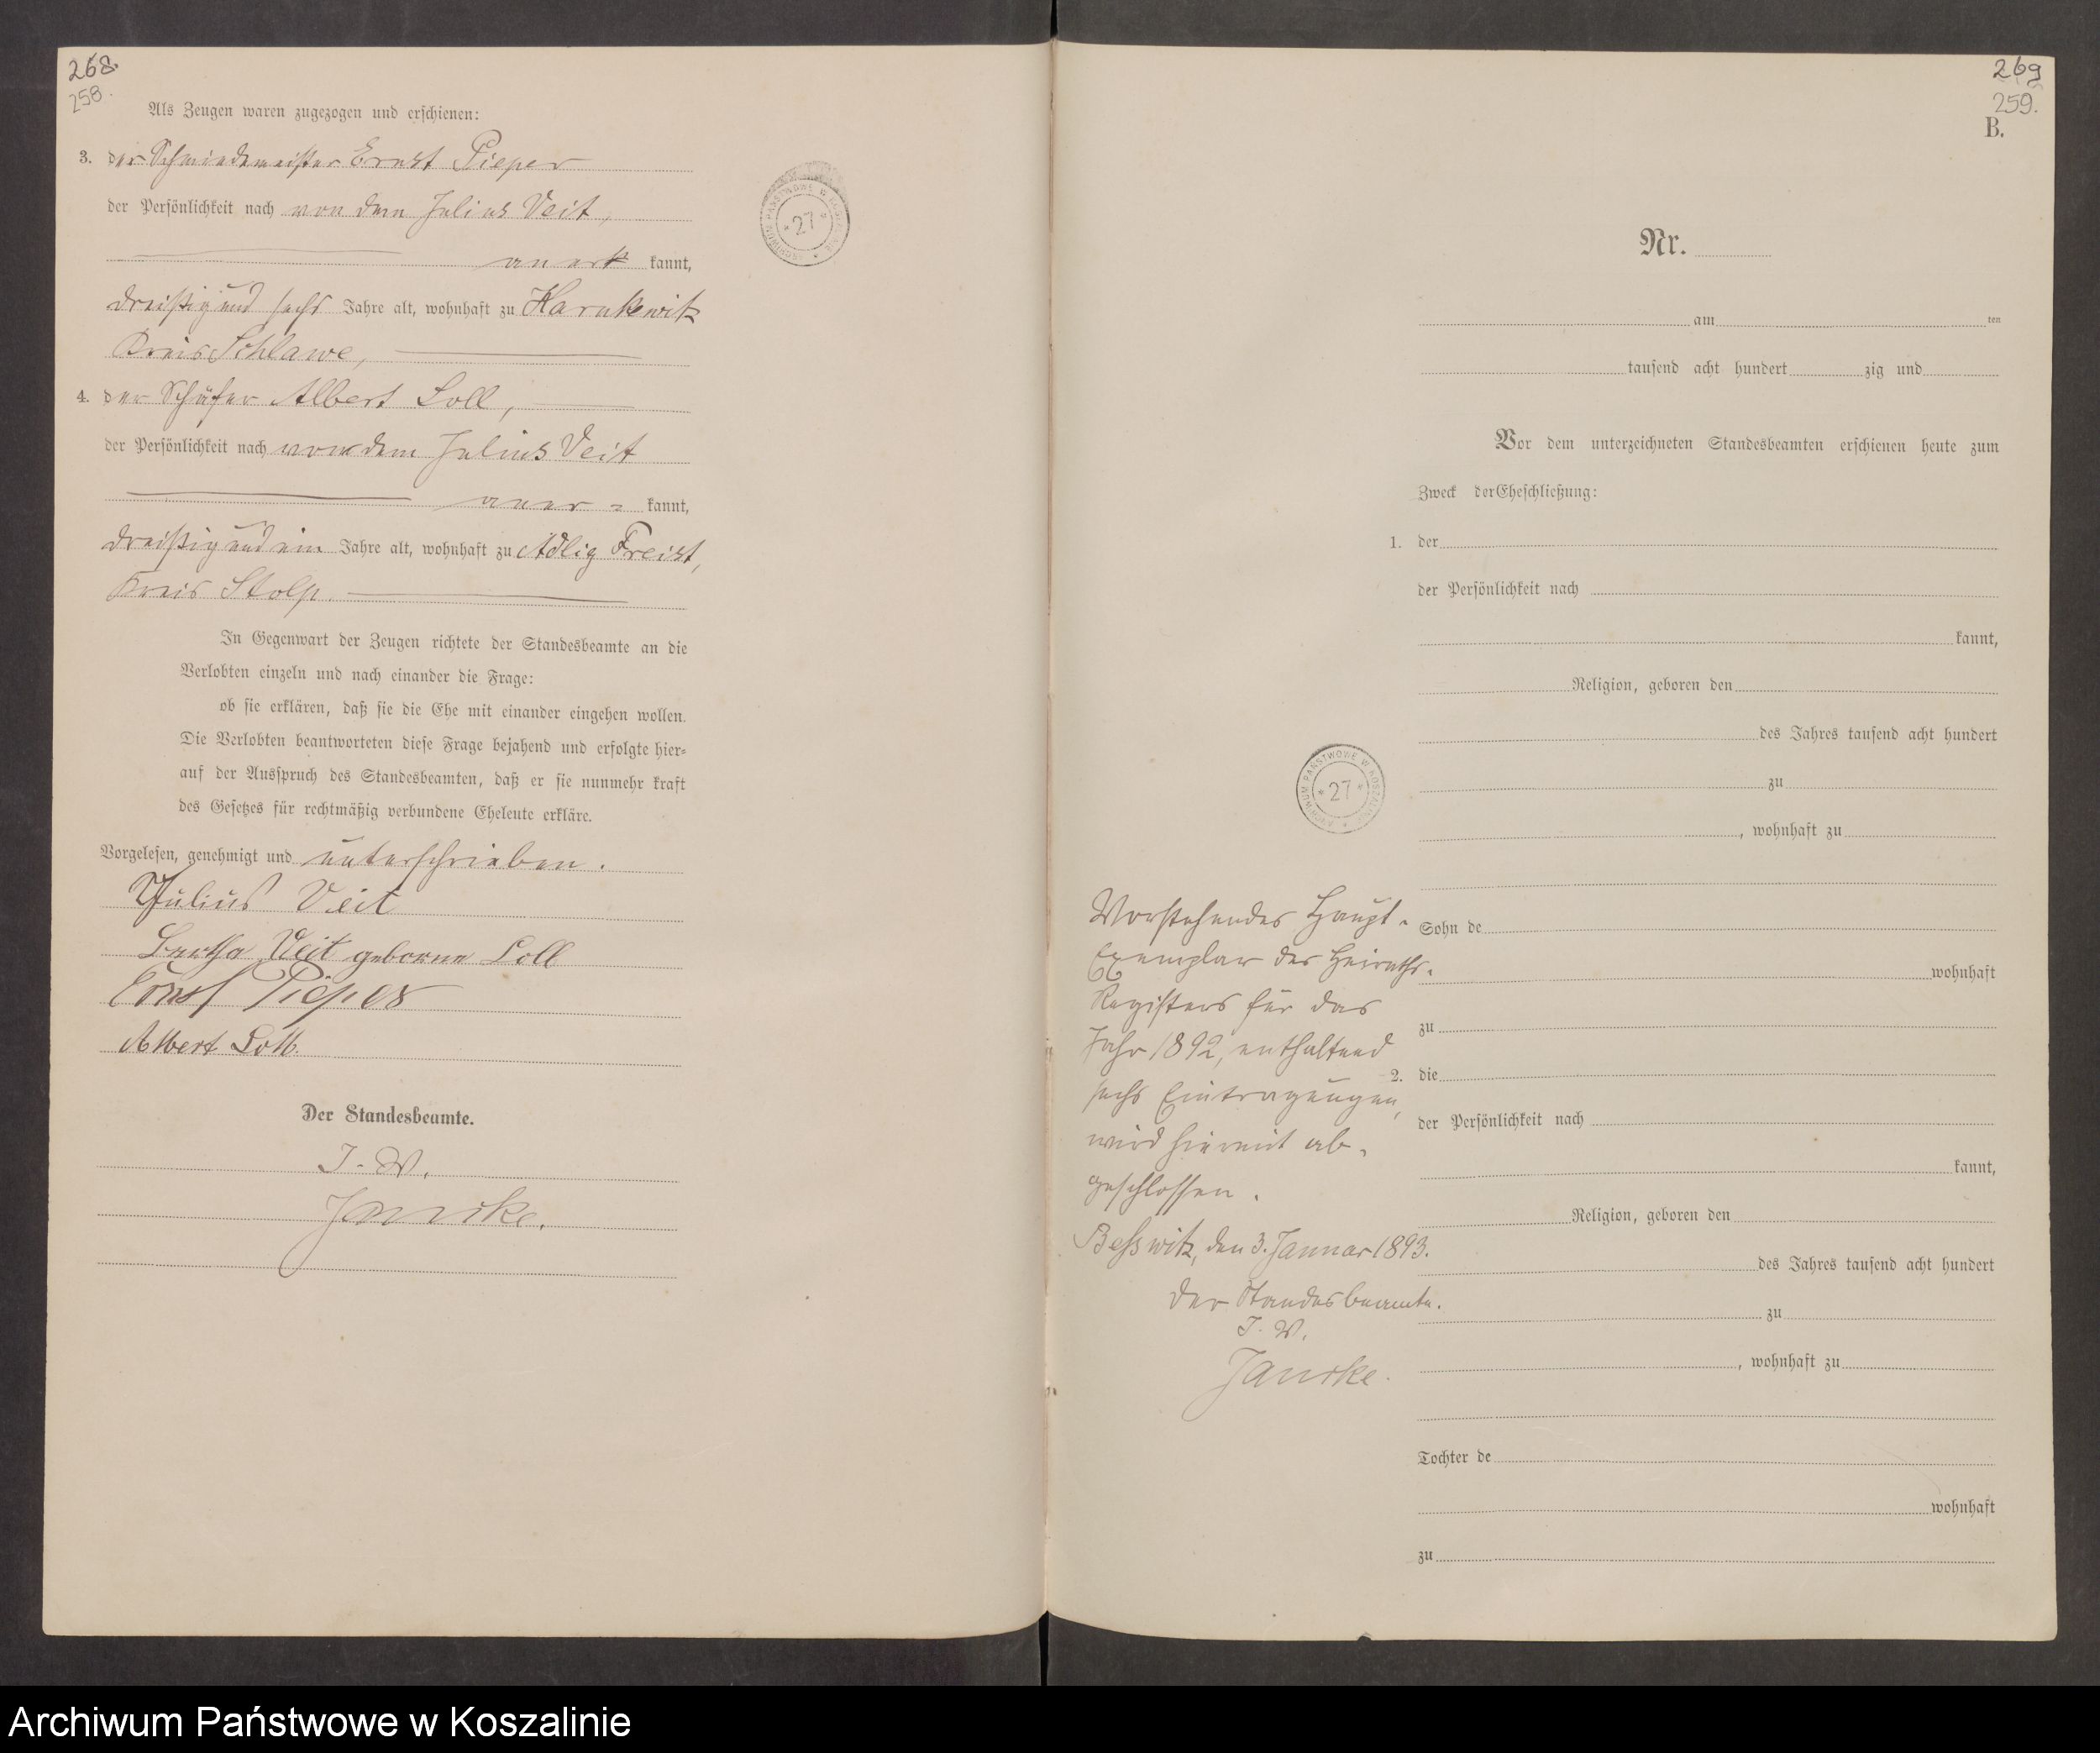 268.
258.
Als Zeugen waren zugezogen und erschienen:
3. der Schmiedemeister Ernst Pieper
der Persönlichkeit nach von dem Julius Veit,
anerk kannt,
dreißig und sechs Jahre alt, wohnhaft zu Karnkewitz
Kreis Schlawe,
4. der Schäfer Albert Loll,
der Persönlichkeit nach von dem Julius Veit
aner = kannt,
dreißig und ein Jahre alt, wohnhaft zu Adlig Freist,
Kreis Stolp.
In Gegenwart der Zeugen richtete der Standesbeamte an die
Verlobten einzeln und nach einander die Frage:
ob sie erklären, daß sie die Ehe mit einander eingehen wollen.
Die Verlobten beantworteten diese Frage bejahend und erfolgte hier-
auf der Ausspruch des Standesbeamten, daß er sie nunmehr kraft
des Gesetzes für rechtmäßig verbundene Eheleute erkläre.
Vorgelesen, genehmigt und unterschrieben.
Julius Veit
Bertha Veit geborne Loll
Ernst Pieper
Albert Loll.
Der Standesbeamte.
I. V.
Jancke.
ARCHIWUM PAŃSTWOWE W KOSZALINIE
* 27 *
269
259.
B.
Nr.
am ten
tausend acht hundert zig und
Vor dem unterzeichneten Standesbeamten erschienen heute zum
Zweck der Eheschließung:
1. der
der Persönlichkeit nach
kannt,
Religion, geboren den
des Jahres tausend acht hundert
zu
, wohnhaft zu
Sohn de
wohnhaft
zu
2. die
der Persönlichkeit nach
kannt,
Religion, geboren den
des Jahres tausend acht hundert
zu
, wohnhaft zu
Tochter de
wohnhaft
zu
ARCHIWUM PAŃSTWOWE W KOSZALINIE
* 27 *
Vorstehendes Haupt-
Exemplar des Heiraths-
Registers für das
Jahr 1892, enthaltend
sechs Eintragungen,
wird hiermit ab-
geschlossen.
Besswitz, den 3. Januar 1893.
Der Standesbeamte.
I. V.
Jancke.
Archiwum Państwowe w Koszalinie